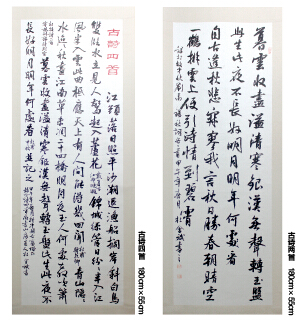 古詩四首
江頭落日照平沙潮退漁船擱岸斜白鳥
雙臨水立見人驚起入蘆花
錦城絲管日紛紛半入江
風半入雲此曲祇應天上有人間能得幾回聞
青山隱隱
水迢迢秋盡江南草未凋二十四橋明月夜玉人何處教吹簫
暮雲收盡溢清寒銀漢無聲轉玉盤此生此夜不
長好明月明年何處看
古诗四首 180cm×55cm
暮雲收盡溢清寒銀漢無聲轉玉盤
此生此夜不長好明月明年何處看
自古逢秋悲寂寥我言秋日勝春朝晴空
一鶴排雲上便引詩情到碧霄
古诗两首 180cm×55cm